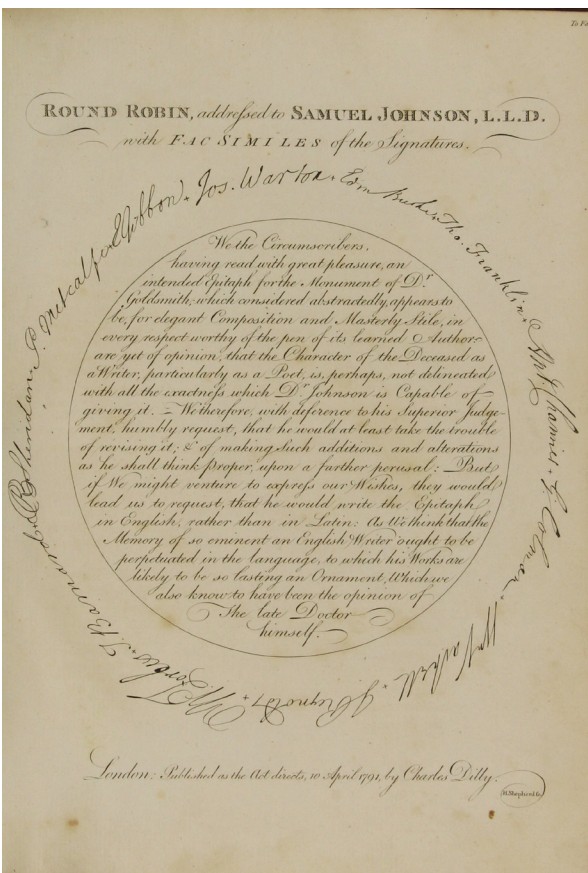 To Fa
ROUND ROBIN, addressed to SAMUEL JOHNSON, L.L.D.
with FAC SIMILES of the Signatures.
Gibbon. Jos. Warton. Edm Burke. Tho. Franklin. Ant. Chamier. G. Colman. Wm Vachell. J Reynolds. W Forbes. T Barnard. R B Sheridan. P. Metcalfe. E
We the Circumscribers,
having read with great pleasure, an
intended Epitaph for the Monument of Dr.
Goldsmith; which considered abstractedly, appears to
be, for elegant Composition and Masterly Stile, in
every respect worthy of the pen of its learned Author;
are yet of opinion, that the Character of the Deceased as
a Writer, particularly as a Poet, is, perhaps, not delineated
with all the exactness which Dr. Johnson is Capable of
giving it. – We therefore, with deference to his Superior Judge-
ment, humbly request, that he would at least take the trouble
of revising it; & of making Such additions and alterations
as he shall think Proper, upon a farther perusal: – But
if We might venture to express our Wishes, they would
lead us to request, that he would write the Epitaph
in English, rather than in Latin: As We think that the
Memory of so eminent an English Writer ought to be
perpetuated in the language, to which his Works are
likely to be so lasting an Ornament, Which we
also know to have been the opinion of
The late Doctor
himself.
London; Published as the Act directs, 10 April 1791, by Charles Dilly.
H. Shepherd sc.